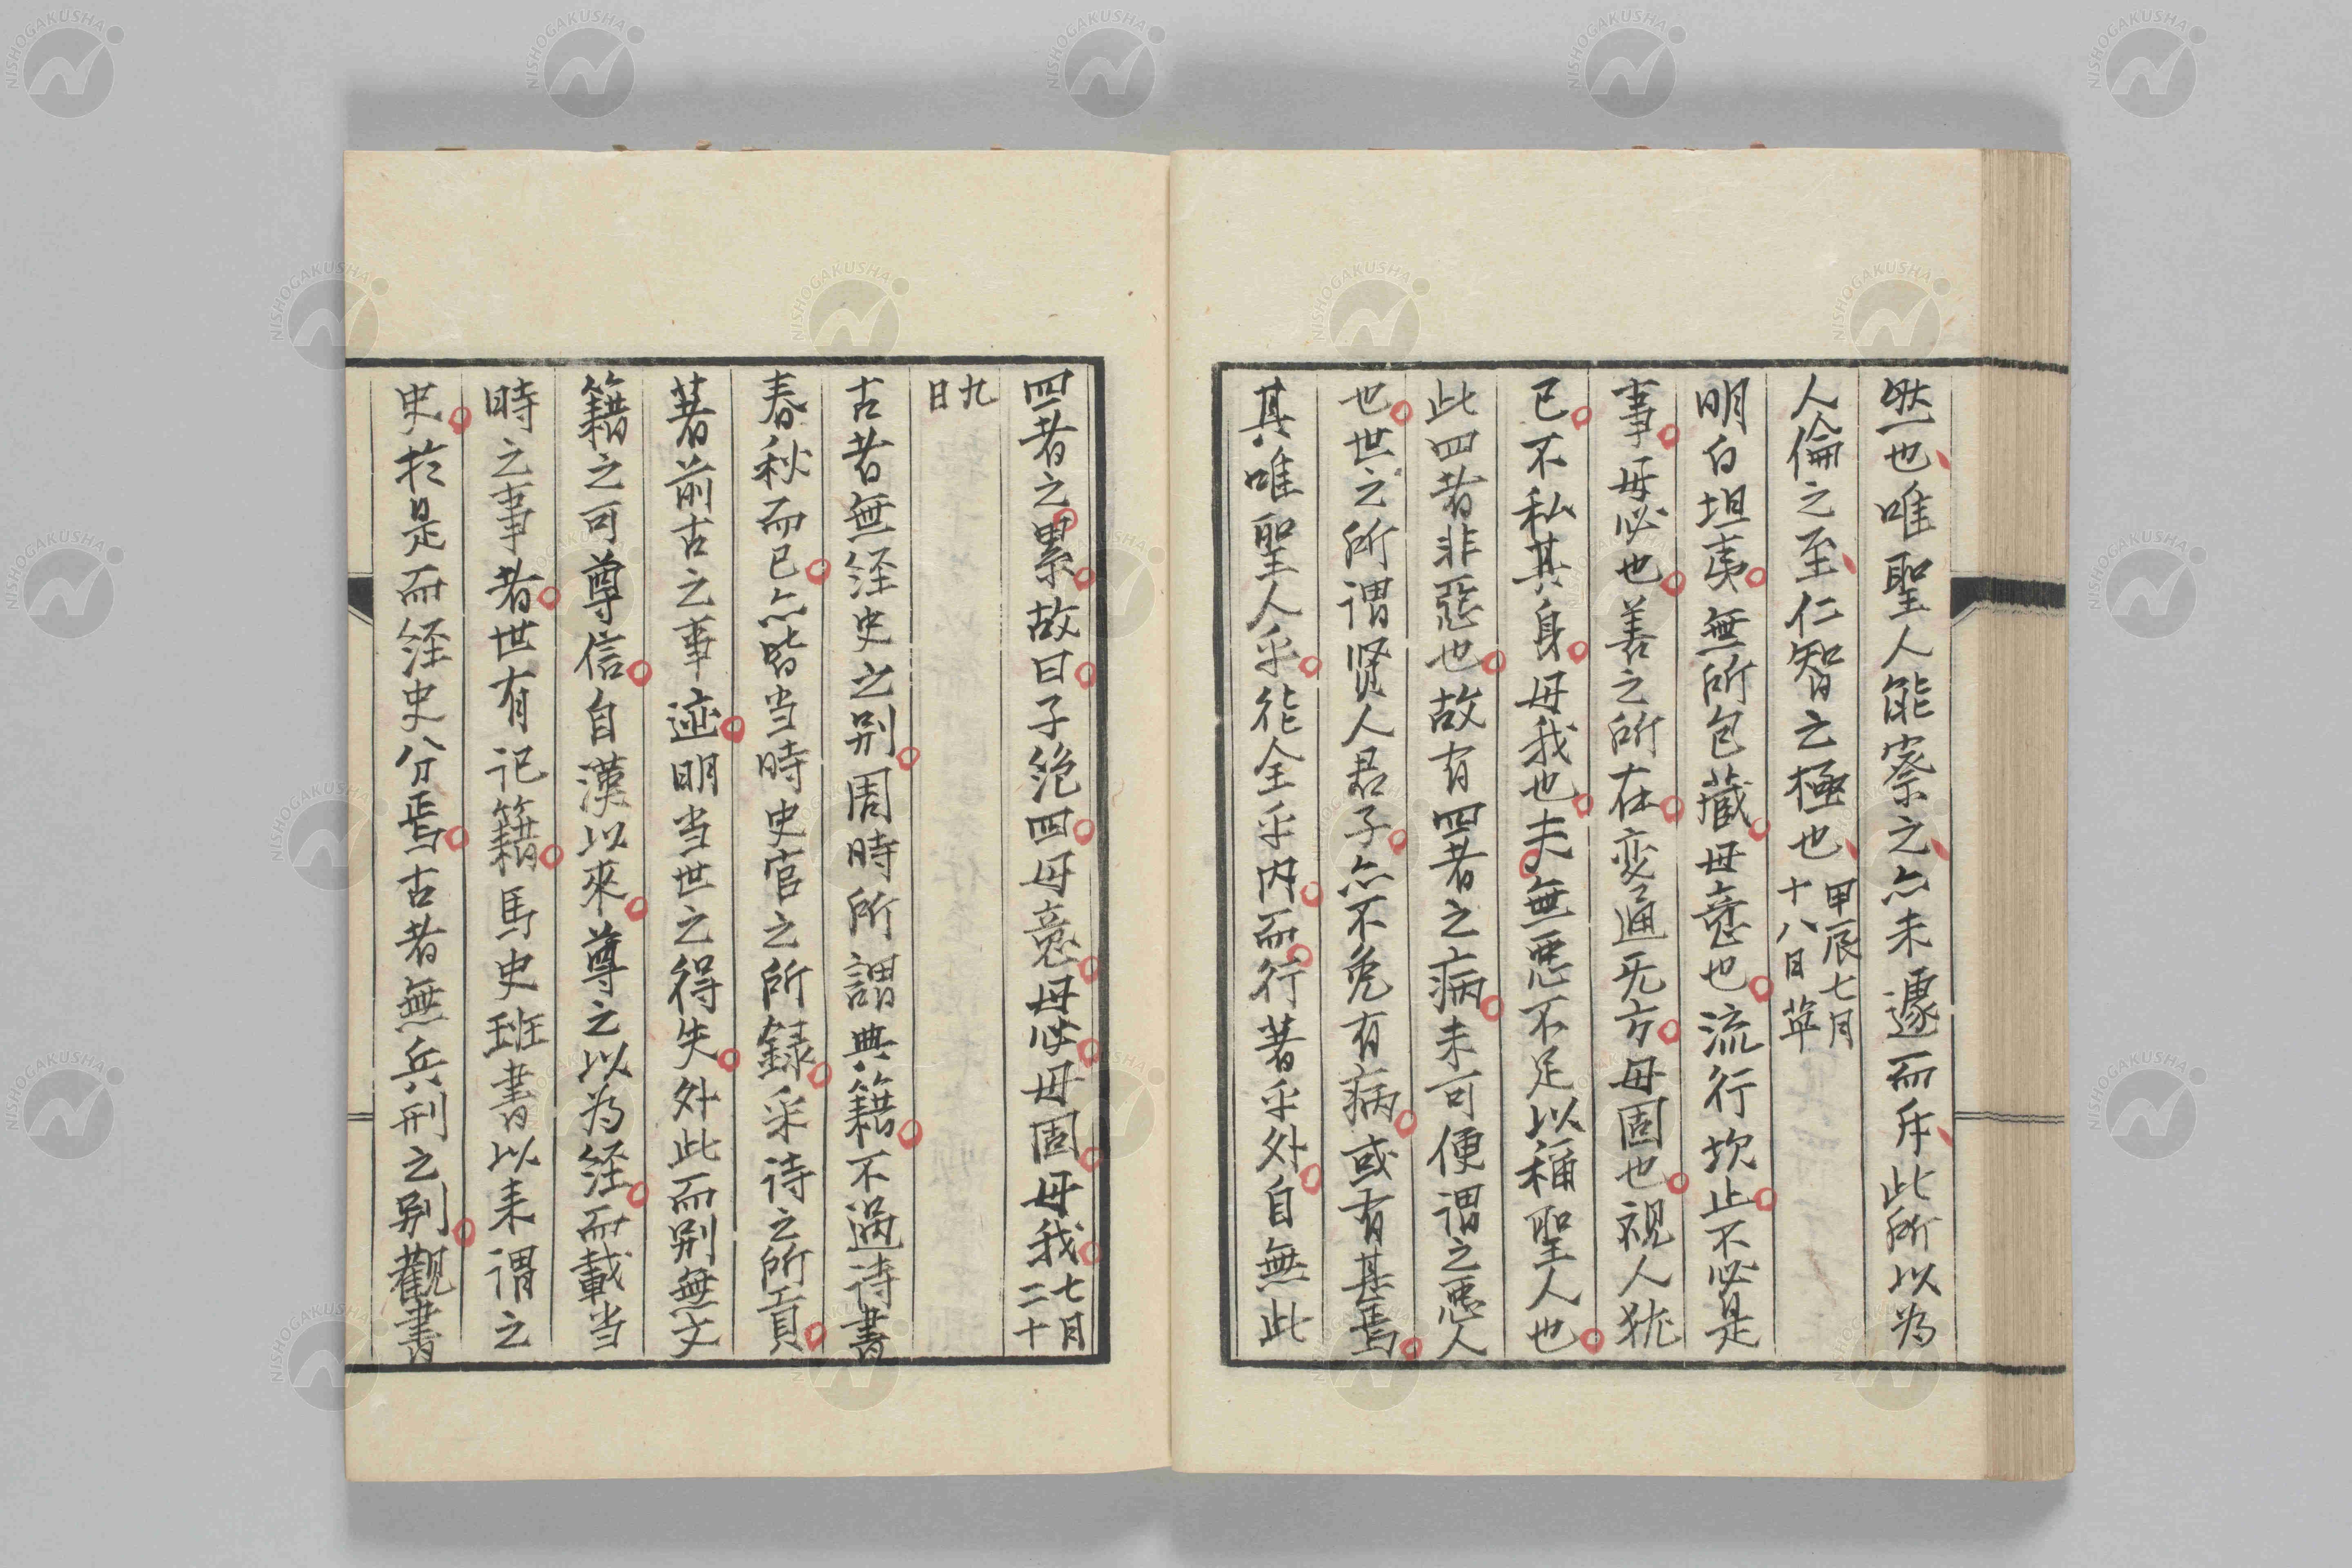 然也唯聖人能察之亦未遽而斥此所以為
人倫之至仁智之極也甲辰七月十八日草
明白坦夷無所包藏毋意也流行坎止不必是
事毋必也善之所在変通无方毋固也視人猶
已不私其身毋我也夫無悪不足以稱聖人也
此四者非惡也故有四者之病未可便謂之悪人
也世之所謂贤人君子亦不免有病或有甚焉
其唯聖人乎能全乎内而行著乎外自無此
四者之累故曰子絶四毋意毋必毋固毋我七月二十
九日
古者無経史之别周時所謂典籍不過詩書
春秋而已亦皆当時史官之所録采詩之所貢
著前古之事迹明当世之得失外此而别無文
籍之可尊信自漢以來尊之以為経而載当
時之事者世有記籍馬史班書以来謂之
史於是而経史分焉古者無兵刑之别觀書
NISHOGAKUSHA